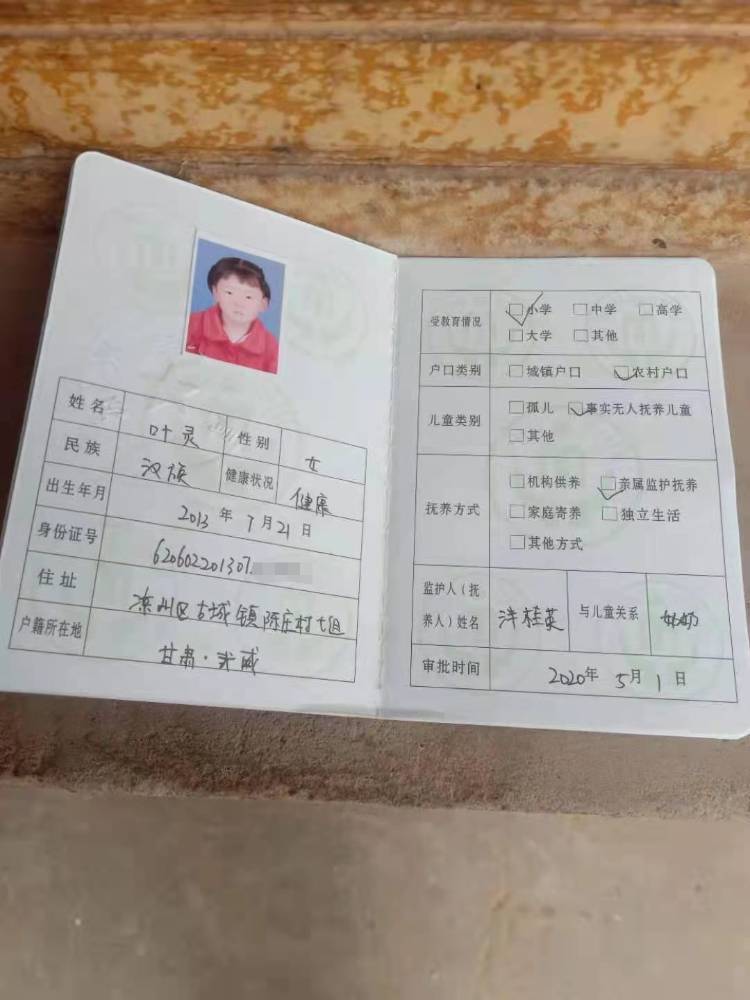 姓名 叶灵 性别 女
民族 汉族 健康状况 健康
出生年月 2013年7月21日
身份证号 620602201307
住址 凉州区古城镇陈庄村七组
户籍所在地 甘肃·武威
受教育情况 ☑小学 □中学 □高学
□大学 □其他
户口类别 □城镇户口 ☑农村户口
儿童类别 □孤儿 ☑事实无人抚养儿童
□其他
抚养方式 □机构供养 ☑亲属监护抚养
□家庭寄养 □独立生活
□其他方式
监护人(抚
养人)姓名 桂英 与儿童关系 奶奶
审批时间 2020年5月1日